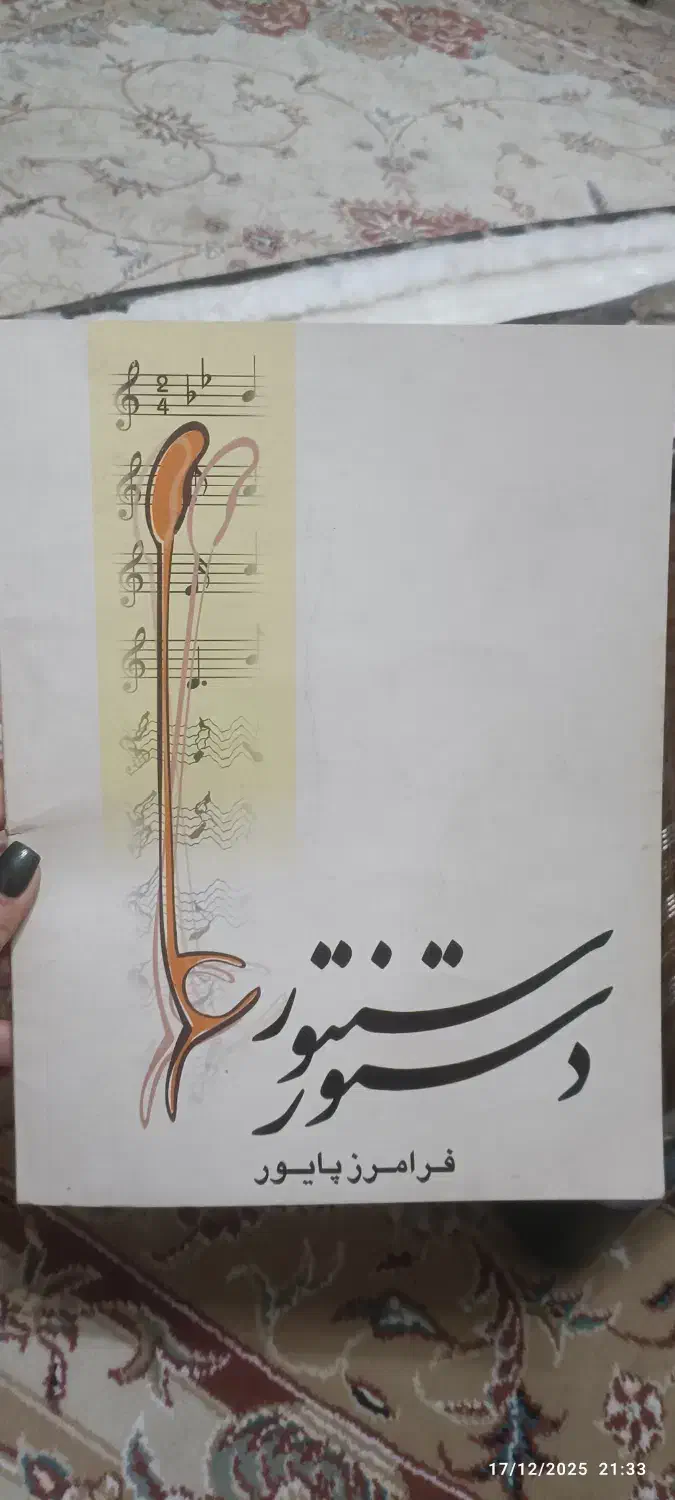 2
4
دستور
سنتور
فرامرز پایور
17/12/2025 21:33